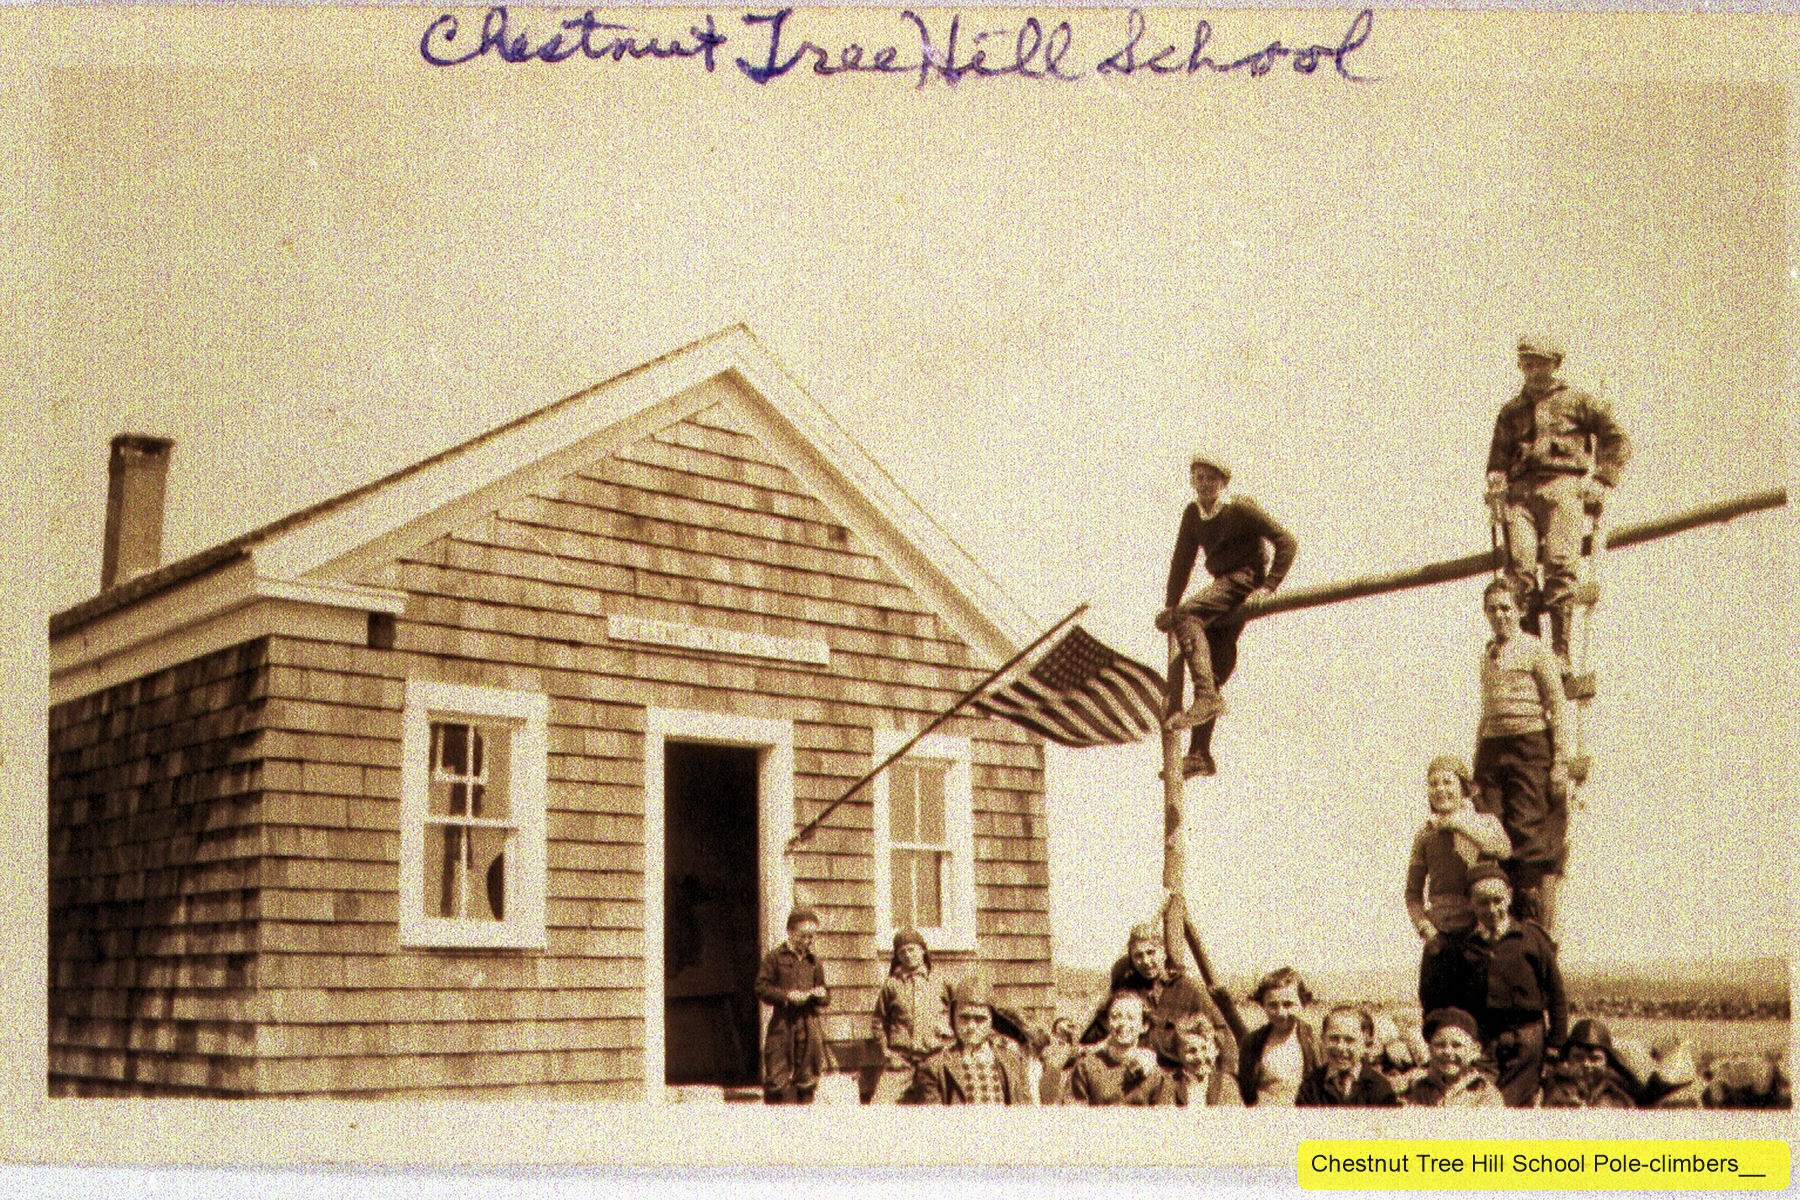 Chestnut Tree Hill School
Chestnut Tree Hill School Pole-climbers__